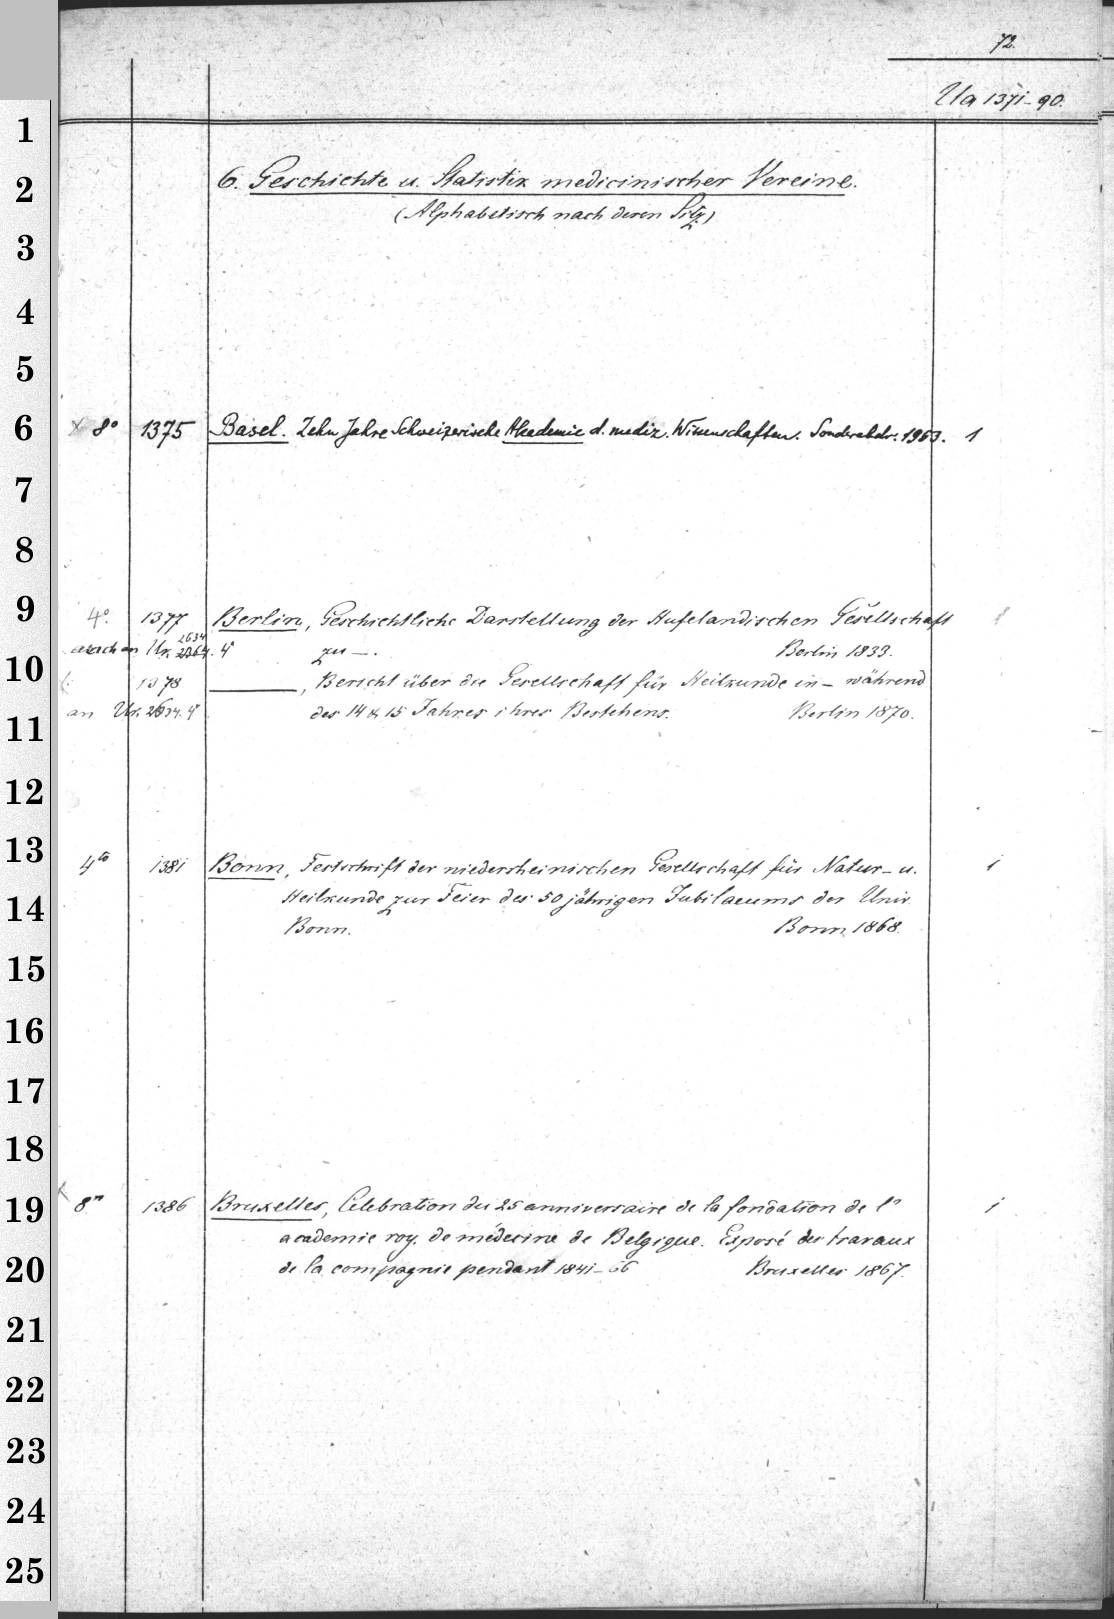 72.
Ua 1371-90.
1
2
6. Geschichte u. Statistik medicinischer Vereine.
(Alphabetisch nach deren Sitz)
3
4
5
6
x 8° 1375 Basel. Zehn Jahre Schweizerische Akademie d. mediz. Wissenschaften. Sonderabdr. 1953. 1
7
8
9
4°. 1377 Berlin, Geschichtliche Darstellung der Hufelandischen Gesellschaft
2634
an Ur. 4° zu —. Berlin 1833.
10
1378 ———, Bericht über die Gesellschaft für Heilkunde in — während
an Ur. 2634. 4° des 14 & 15 Jahres ihres Bestehens. Berlin 1870.
11
12
13
4to 1381 Bonn, Festschrift der niederrheinischen Gesellschaft für Natur- u. 1
14
Heilkunde zur Feier des 50 jährigen Jubilaeums der Univ.
Bonn. Bonn 1868.
15
16
17
18
19
8° 1386 Bruxelles, Célébration du 25 anniversaire de la fondation de l'
1
academie roy. de médecine de Belgique. Exposé des travaux
20
de la compagnie pendant 1841-66 Bruxelles 1867.
21
22
23
24
25